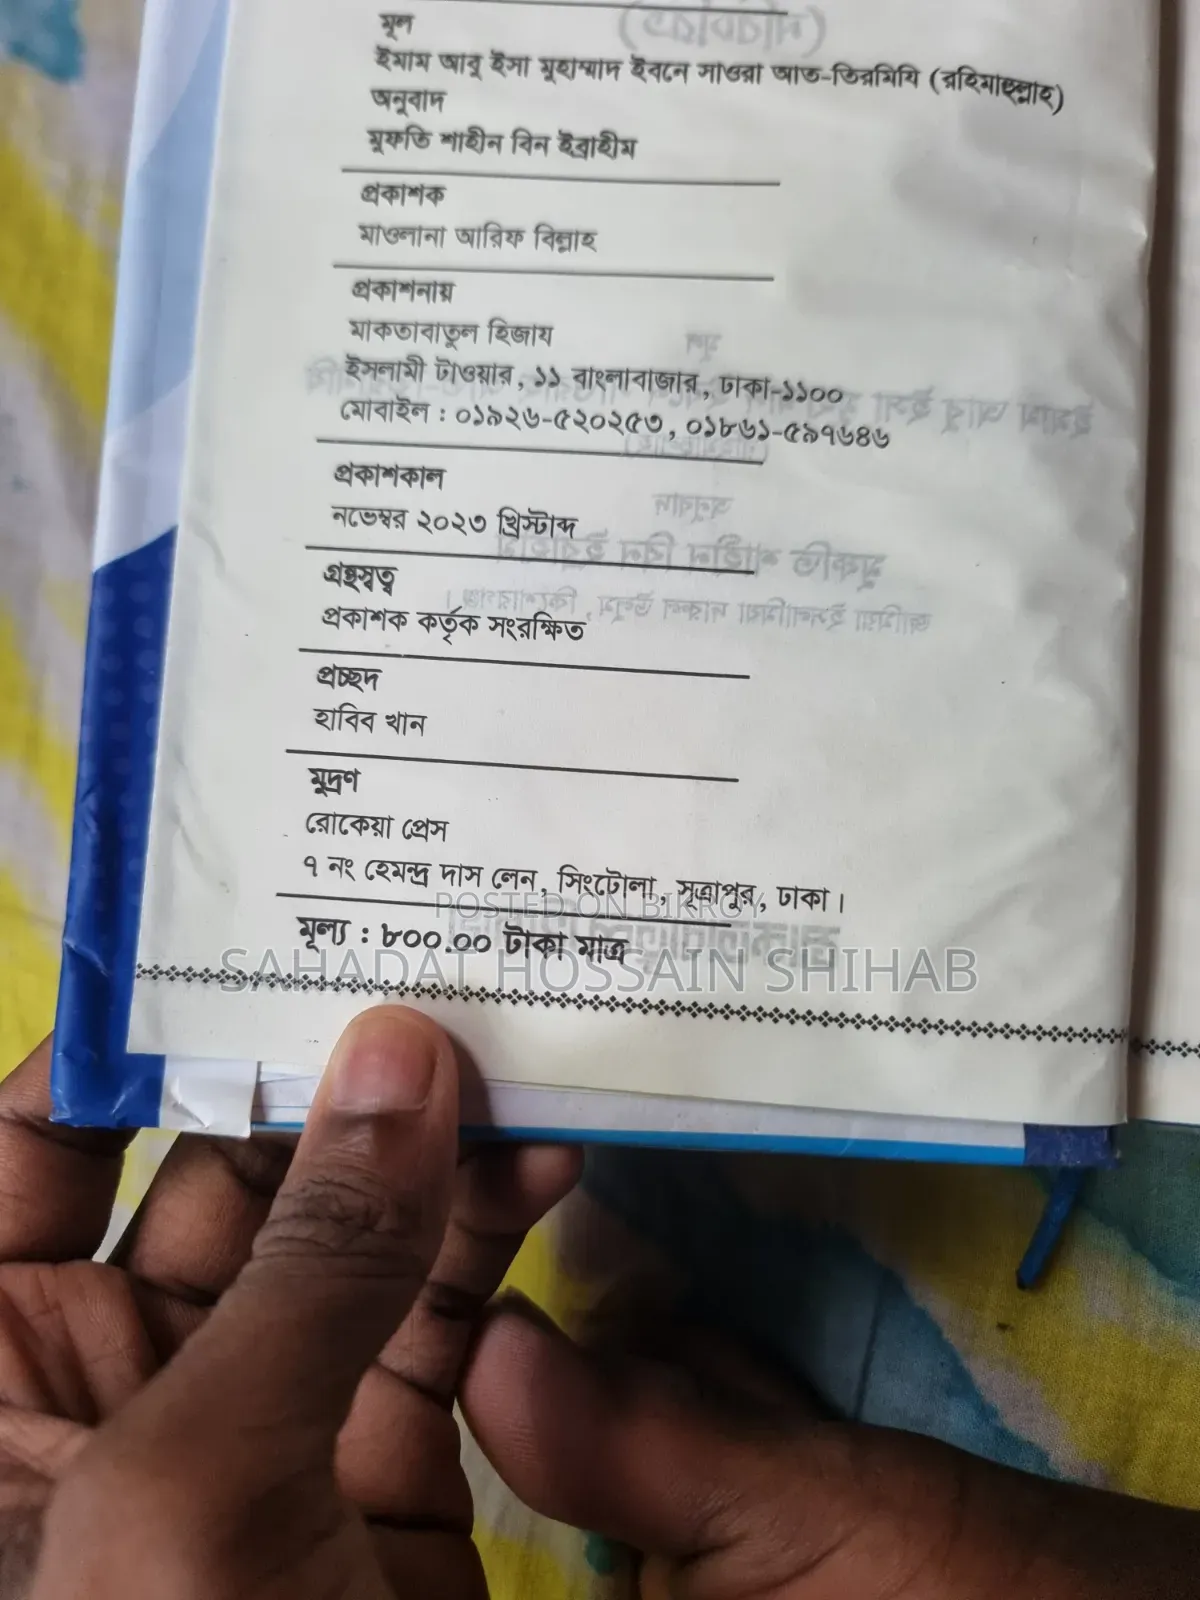 মূল
ইমাম আবু ইসা মুহাম্মাদ ইবনে সাওরা আত-তিরমিযি (রহিমাহুল্লাহ)
অনুবাদ
মুফতি শাহীন বিন ইব্রাহীম
প্রকাশক
মাওলানা আরিফ বিল্লাহ
প্রকাশনায়
মাকতাবাতুল হিজায
ইসলামী টাওয়ার, ১১ বাংলাবাজার, ঢাকা-১১০০
মোবাইল : ০১৯২৬-৫২০২৫৩, ০১৮৬১-৫৯৭৬৪৬
প্রকাশকাল
নভেম্বর ২০২৩ খ্রিস্টাব্দ
গ্রন্থস্বত্ব
প্রকাশক কর্তৃক সংরক্ষিত
প্রচ্ছদ
হাবিব খান
মুদ্রণ
রোকেয়া প্রেস
৭ নং হেমন্দ্র দাস লেন, সিংটোলা, সূত্রাপুর, ঢাকা।
মূল্য : ৮০০.০০ টাকা মাত্র
POSTED ON BIKROY
SAHADAT HOSSAIN SHIHAB